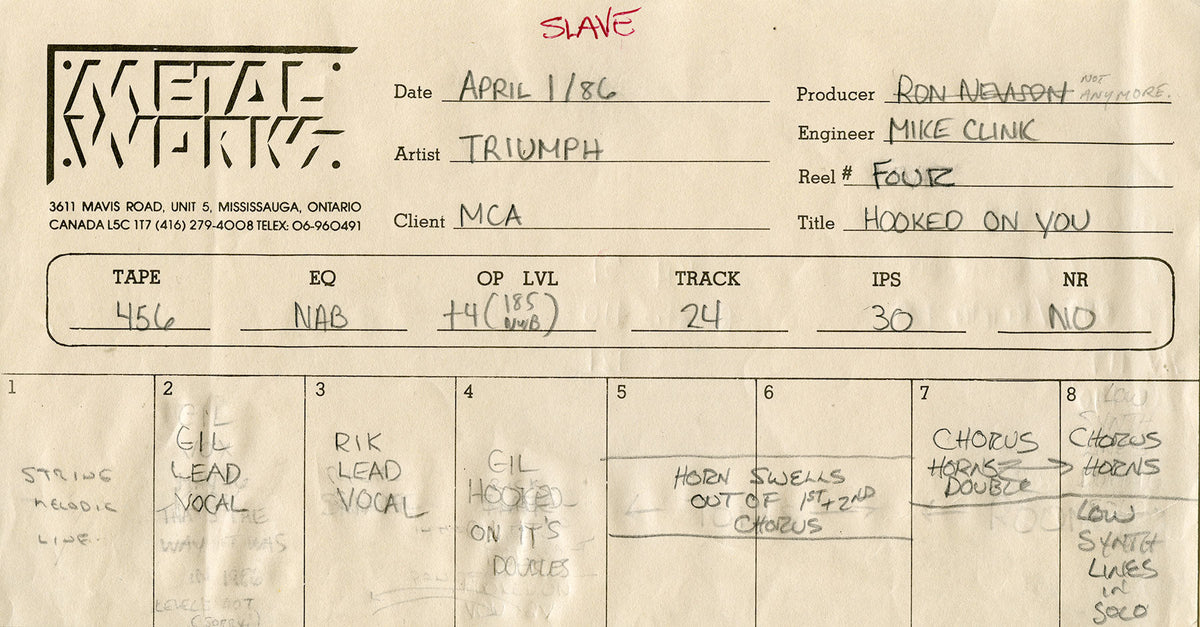 SLAVE
METAL
WORKS
3611 MAVIS ROAD, UNIT 5, MISSISSAUGA, ONTARIO
CANADA L5C 1T7 (416) 279-4008 TELEX: 06-960491
Date APRIL 1/86
Artist TRIUMPH
Client MCA
Producer RON NEVISON NOT ANYMORE.
Engineer MIKE CLINK
Reel # FOUR
Title HOOKED ON YOU
TAPE EQ OP LVL TRACK IPS NR
456 NAB +4 (185 NWB) 24 30 NO
1
STRING
MELODIC
LINE.
2
GIL
GIL
LEAD
VOCAL
THAT'S THE
WAY IT WAS
IN 1983
LEVELS NOT
(SORRY!)
3
RIK
LEAD
VOCAL
4
GIL
HOOKED
ON IT'S
DOUBLES
5 6
HORN SWELLS
OUT OF 1ST + 2ND
CHORUS
7
CHORUS
HORNS
DOUBLE
8
LOW
SYNTH
CHORUS
HORNS
LOW
SYNTH
LINES
in
SOLO